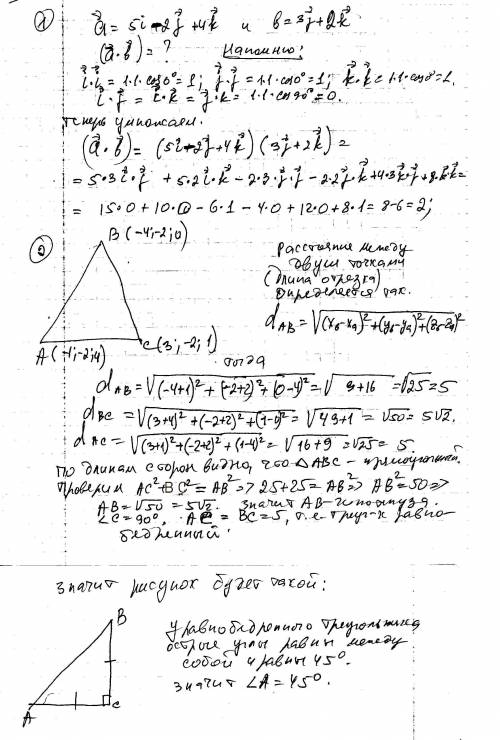 1) a⃗ = 5i − 2j⃗ + 4k⃗ и b = 3j⃗ + 2k⃗
(a⃗·b⃗) = ? Напомню:
i⃗·i⃗ = 1·1·cos0° = 1; j⃗·j⃗ = 1·1·cos0° = 1; k⃗·k⃗ = 1·1·cos0° = 1.
i⃗·j⃗ = i⃗·k⃗ = j⃗·k⃗ = 1·1·cos90° = 0.
теперь умножаем.
(a⃗·b⃗) = (5i − 2j⃗ + 4k⃗)(3j⃗ + 2k⃗) =
= 5·3i⃗·j⃗ + 5·2i⃗·k⃗ − 2·3·j⃗·j⃗ − 2·2j⃗·k⃗ + 4·3k⃗·j⃗ + 8·k⃗·k⃗ =
= 15·0 + 10·0 − 6·1 − 4·0 + 12·0 + 8·1 = 8−6 = 2;
2) B(−4; −2; 0)
A(−1; −2; 4)
C(3; −2; 1)
Расстояние между
двумя точками
(длина отрезка)
определяется так.
d_AB = √((x_B−x_A)² + (y_B−y_A)² + (z_B−z_A)²)
тогда
d_AB = √((−4+1)² + (−2+2)² + (0−4)²) = √(9+16) = √25 = 5
d_BC = √((3+4)² + (−2+2)² + (1−0)²) = √(49+1) = √50 = 5√2.
d_AC = √((3+1)² + (−2+2)² + (1−4)²) = √(16+9) = √25 = 5.
По длинам сторон видно, что △ABC − прямоугольный.
Проверим AC² + BC² = AB² => 25+25 = AB² => AB² = 50 =>
AB = √50 = 5√2. значит AB − гипотенуза.
∠C = 90°, AC = BC = 5, т.е. треуг-к равно
бедренный.
Значит рисунок будет такой:
B
A
C
У равнобедренного треугольника
острые углы равны между
собой и равны 45°.
значит ∠A = 45°.